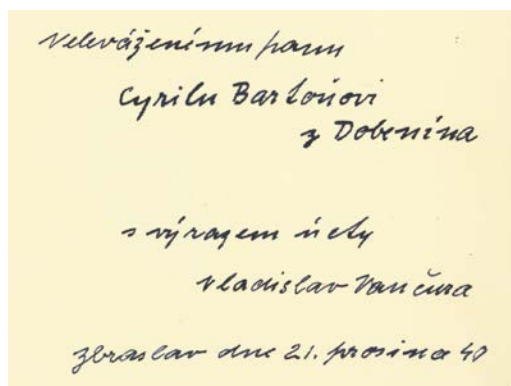 Velováženému panu
Cyrilu Bartoňovi
z Dobenína
s výrazem úcty
Vladislav Vančura
Zbraslav dne 21. prosince 40